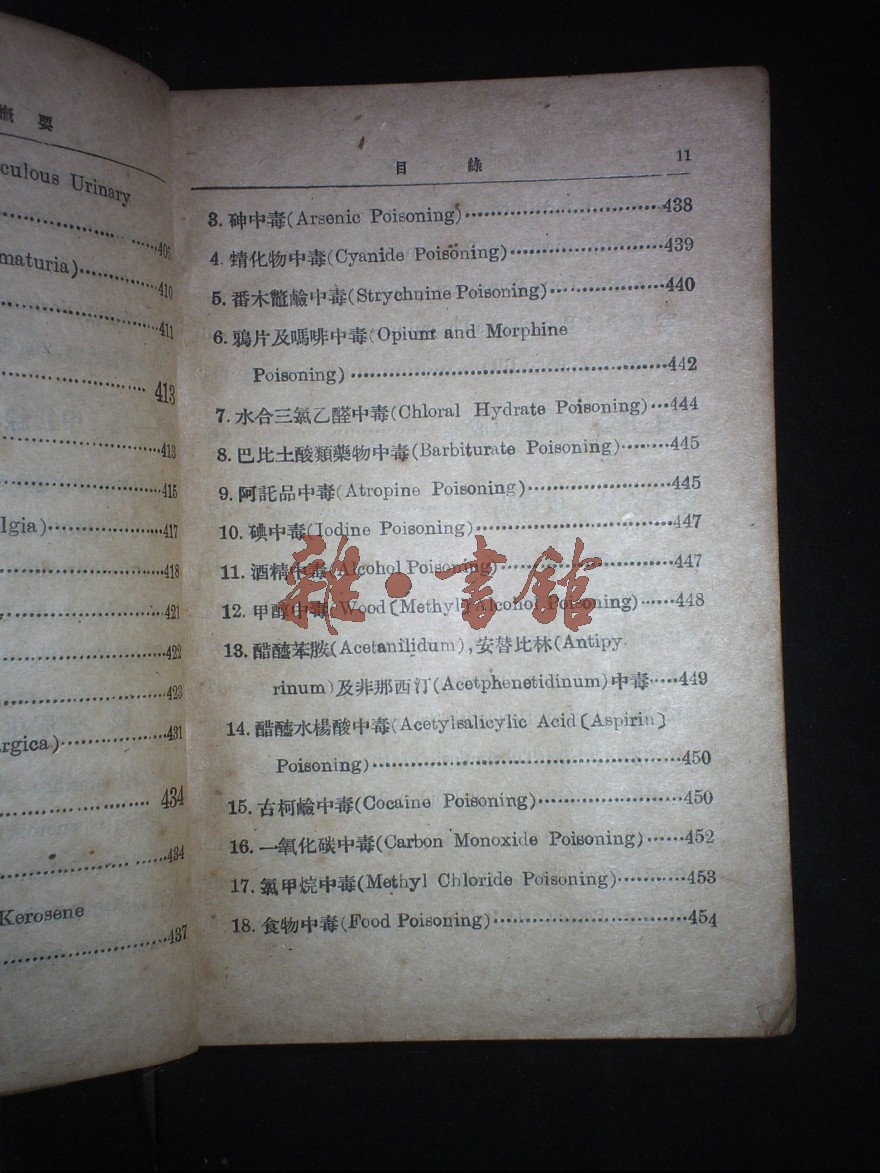 概要
culous Urinary
406
maturia)
410
411
413
413
415
lgia)
417
418
421
422
423
rgica)
431
434
434
Kerosene
437
目錄 11
3. 砷中毒(Arsenic Poisoning)438
4. 蜻化物中毒(Cyanide Poisoning)439
5. 番木鼈鹼中毒(Strychnine Poisoning)440
6. 鴉片及嗎啡中毒(Opium and Morphine
Poisoning)442
7. 水合三氯乙醛中毒(Chloral Hydrate Poisoning)444
8. 巴比土酸類藥物中毒(Barbiturate Poisoning)445
9. 阿託品中毒(Atropine Poisoning)445
10. 碘中毒(Iodine Poisoning)447
11. 酒精中毒(Alcohol Poisoning)447
12. 甲醇中毒(Wood〔Methyl〕Alcohol Poisoning)448
13. 醋醯苯胺(Acetanilidum),安替比林(Antipy
rinum)及非那西汀(Acetphenetidinum)中毒449
14. 醋醯水楊酸中毒(Acetylsalicylic Acid〔Aspirin〕
Poisoning)450
15. 古柯鹼中毒(Cocaine Poisoning)450
16. 一氧化碳中毒(Carbon Monoxide Poisoning)452
17. 氯甲烷中毒(Methyl Chloride Poisoning)453
18. 食物中毒(Food Poisoning)454
雜·書館